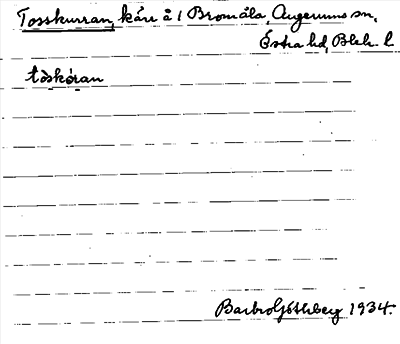 Tosskurran, kärr å 1 Bromåla, Augerums sn,
Östra hd, Blek. l
tòskóran
Barbro Göthberg 1934.